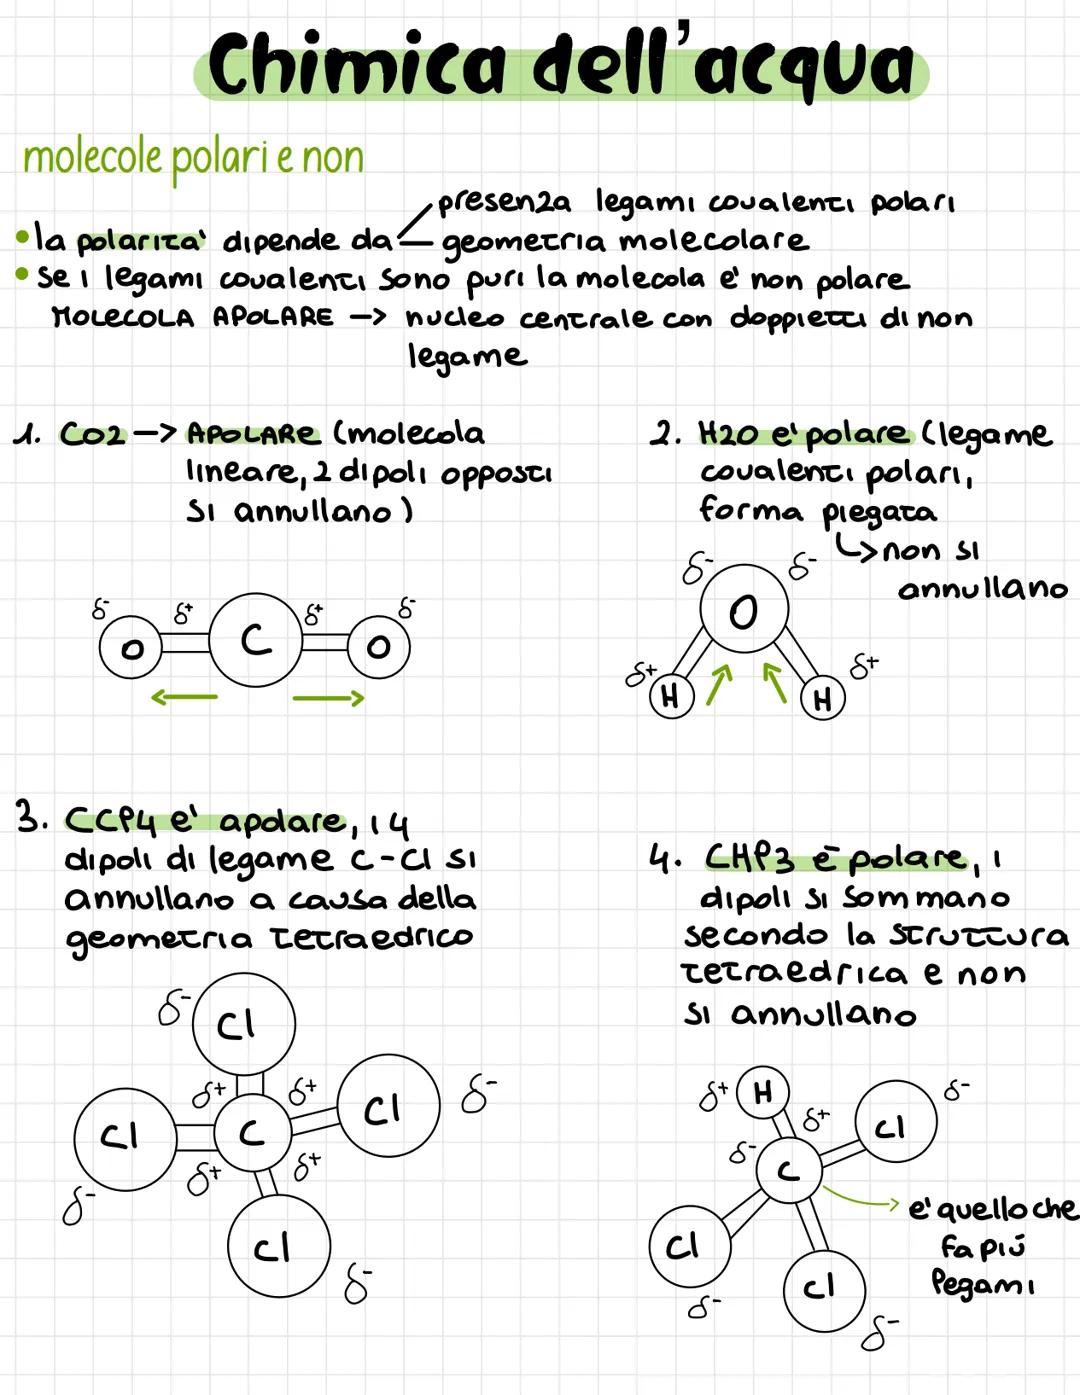 Chimica dell'acqua
molecole polari e non
presenza legami covalenti polari
• la polarità dipende da geometria molecolare
• se i legami covalenti sono puri la molecola e' non polare
MOLECOLA APOLARE -> nucleo centrale con doppietti di non
legame
1. CO2 -> APOLARE (molecola
lineare, 2 dipoli opposti
si annullano)
2. H2O e' polare (legame
covalenti polari,
forma piegata
↳ non si
annullano
δ- δ+ δ+ δ-
O C O
δ- δ-
O
δ+ δ+
H H
3. CCl4 e' apolare, i 4
dipoli di legame C-Cl si
annullano a causa della
geometria tetraedrico
4. CHl3 è polare, i
dipoli si sommano
secondo la struttura
tetraedrica e non
si annullano
δ-
Cl
δ+ δ+ Cl δ-
Cl C
δ- δ+ δ+
Cl
δ-
δ+ H δ+ Cl δ-
δ- C
e' quello che
fa più
legami
Cl Cl
δ- δ-